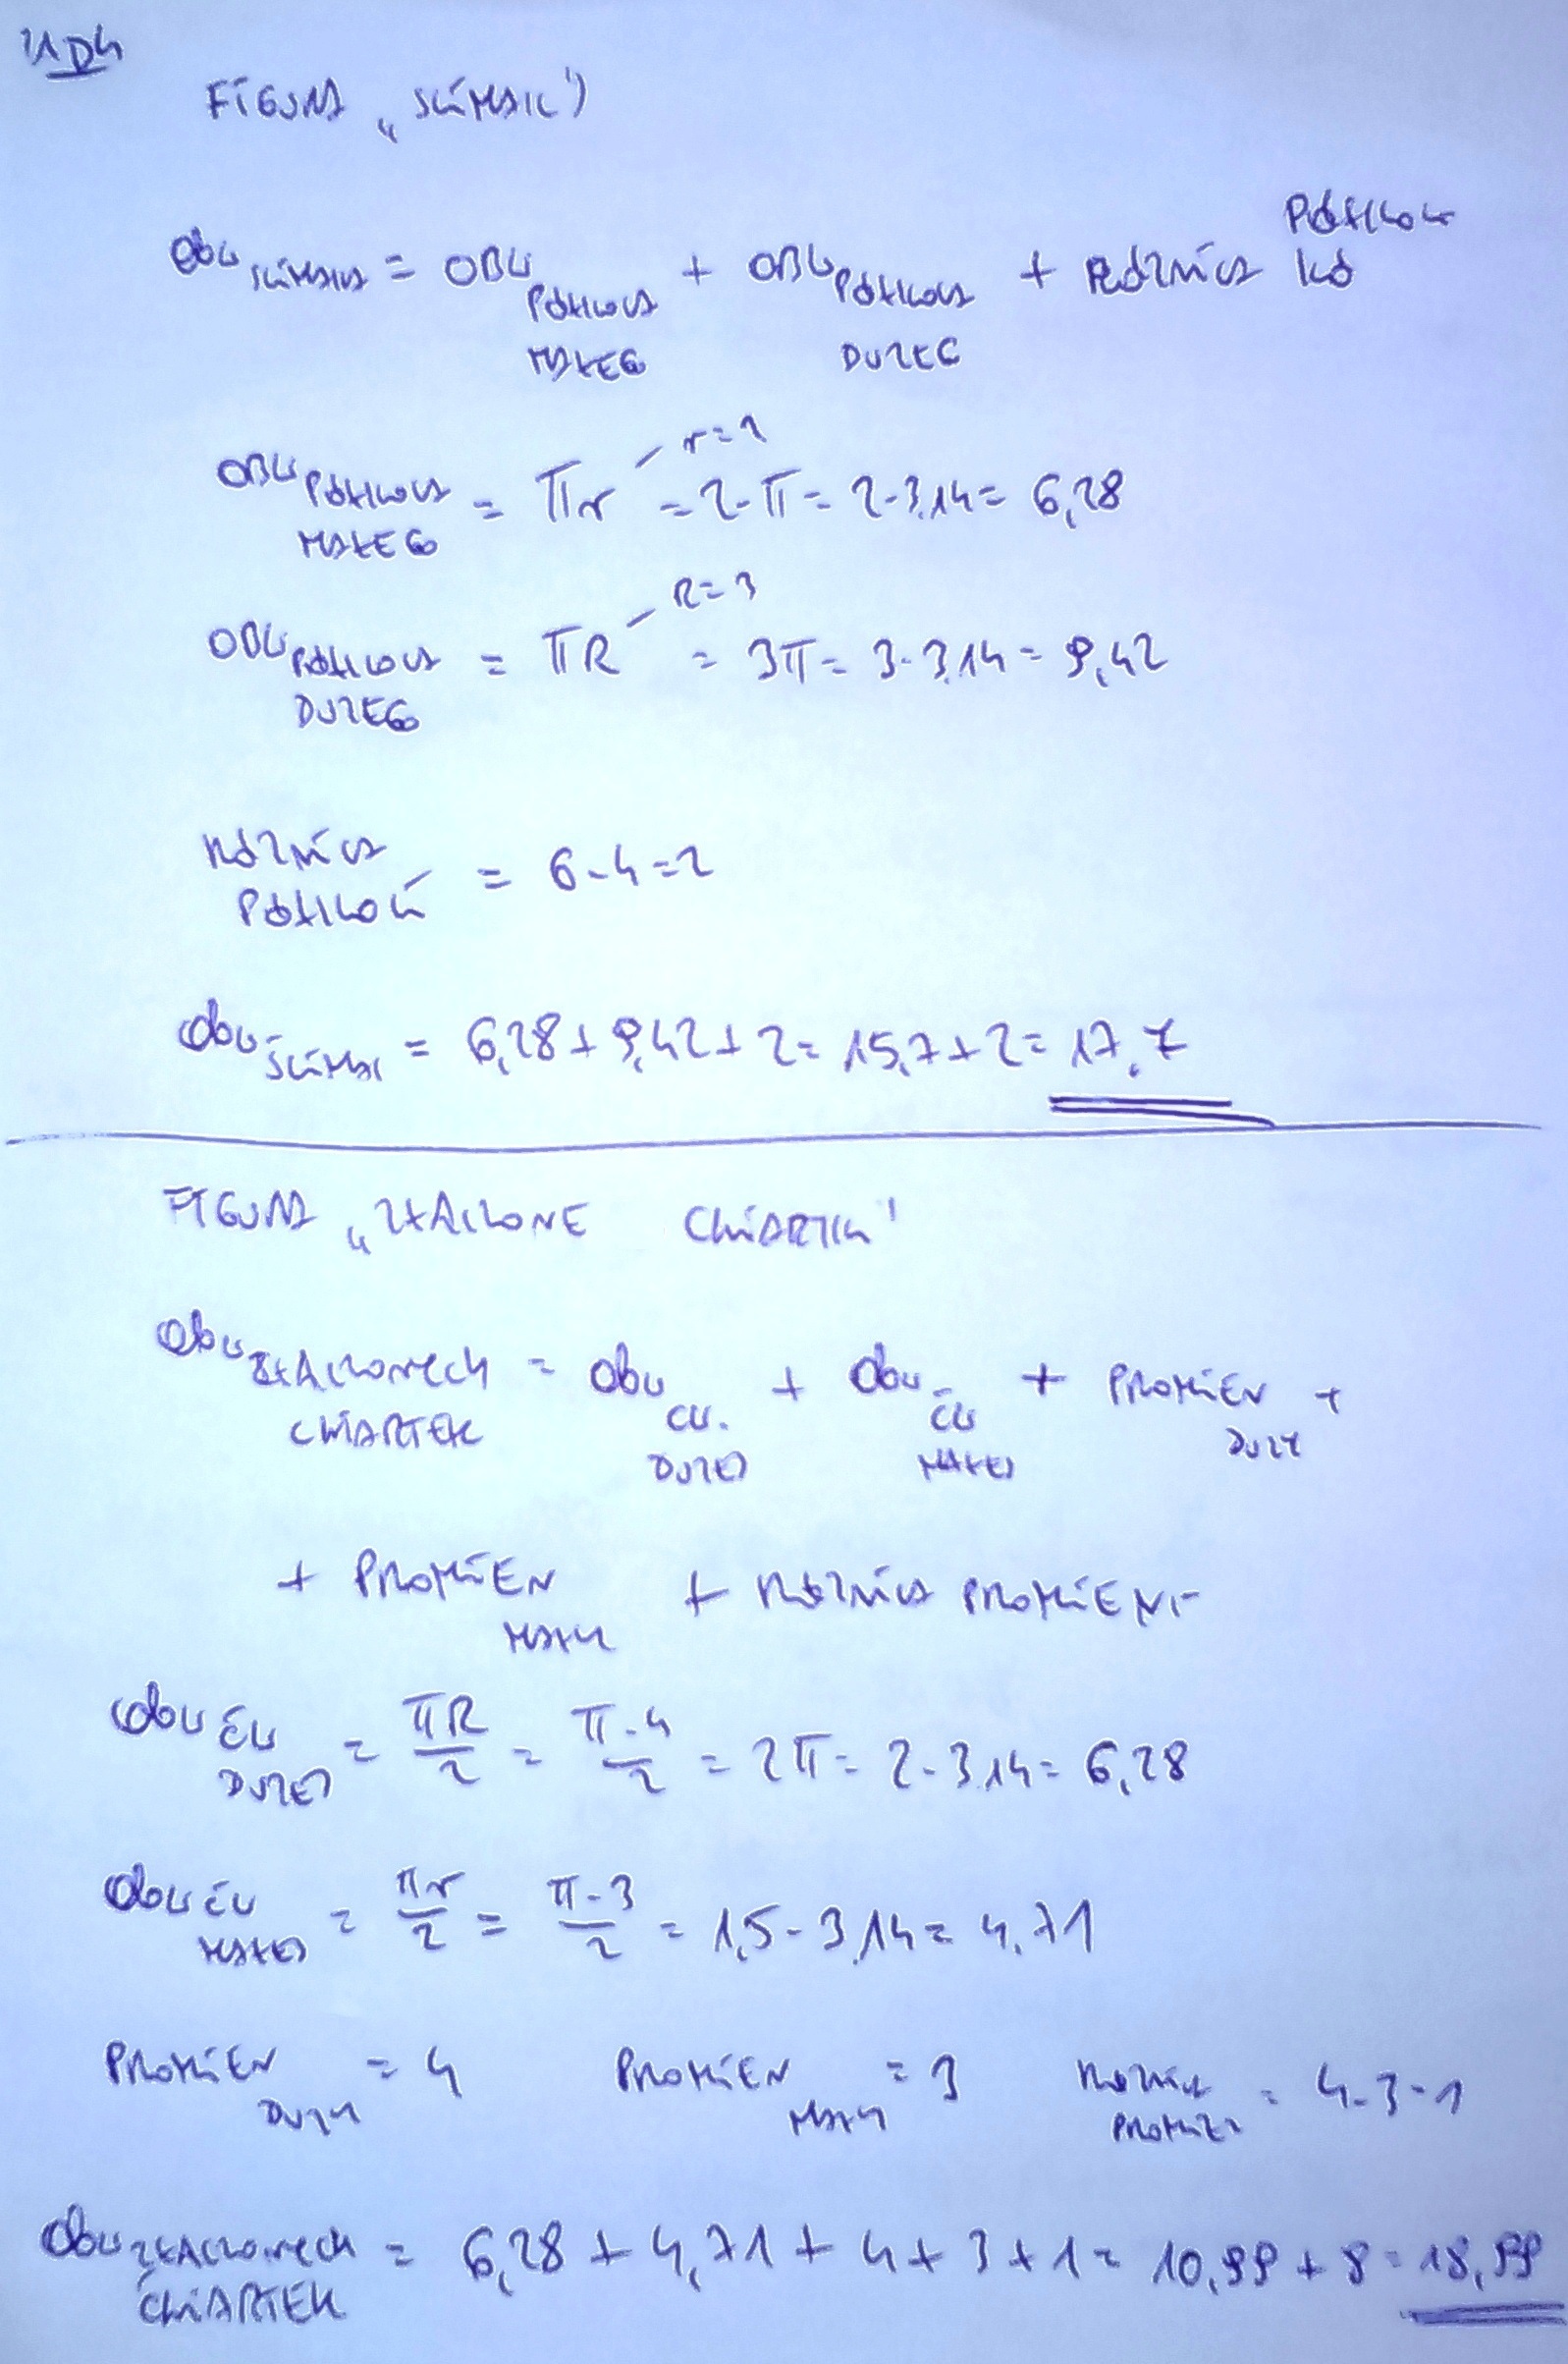 FIGURA „ŚLIMAK"
Obw ślimaka = OBW PÓŁKOLA MAŁEGO + OBW PÓŁKOLA DUŻEG + RÓŻNICA PÓŁKOLI
OBW PÓŁKOLA MAŁEGO = πr = 2·π = 2·3,14 = 6,28
R=3
OBW PÓŁKOLA DUŻEGO = πR = 3π = 3·3,14 = 9,42
RÓŻNICA PÓŁKOLI = 6-4=2
Obw ślimak = 6,28+9,42+2= 15,7+2= 17,7
FIGURA „ZŁĄCZONE ĆWIARTKI"
Obw ZŁĄCZONYCH ĆWIARTEK = Obw ĆW. DUŻEJ + Obw ĆW MAŁEJ + PROMIEŃ DUŻY +
+ PROMIEŃ MAŁY + RÓŻNICA PROMIENI
Obw ĆW DUŻEJ = πR/2 = π·4/2 = 2π = 2·3,14 = 6,28
Obw ĆW MAŁEJ = πr/2 = π·3/2 = 1,5·3,14 = 4,71
PROMIEŃ DUŻY = 4 PROMIEŃ MAŁY = 3 RÓŻNICA PROMIENI = 4-3=1
Obw ZŁĄCZONYCH ĆWIARTEK = 6,28 + 4,71 + 4 + 3 + 1 = 10,99 + 8 = 18,99